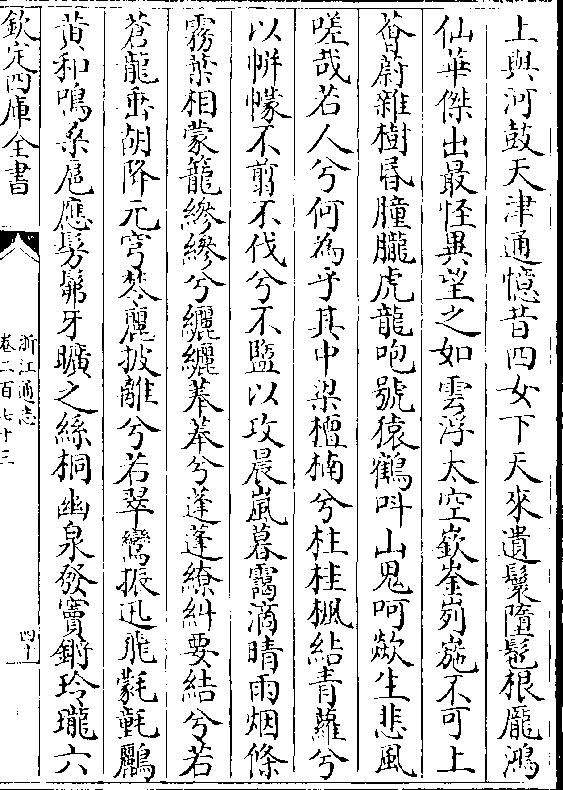 上與河鼓天津通憶昔四女下天來遺鬟墮髢根厖鴻
仙華傑出最怪異望之如雲浮太空嶔崟峛崺不可上
薈蔚雜樹昏朣朧虎龍咆號猿鶴叫山鬼呵歘生悲風
嗟哉若人兮何為乎其中梁檀楠兮柱桂楓結青蘿兮
以帡幪不剪不伐兮不盬以攻晨嵐暮靄滴晴雨烟條
霧葉相蒙籠縿縿兮纚纚菶菶兮蓬蓬繚糾要結兮若
蒼龍垂胡降元穹棽麗披離兮若翠鸞振迅飛氋氃鸝
黄和鳴桑扈應髣髴牙曠之絲桐幽泉發竇鏘玲瓏六
欽定四庫全書
浙江通志
卷二百七十三
四十